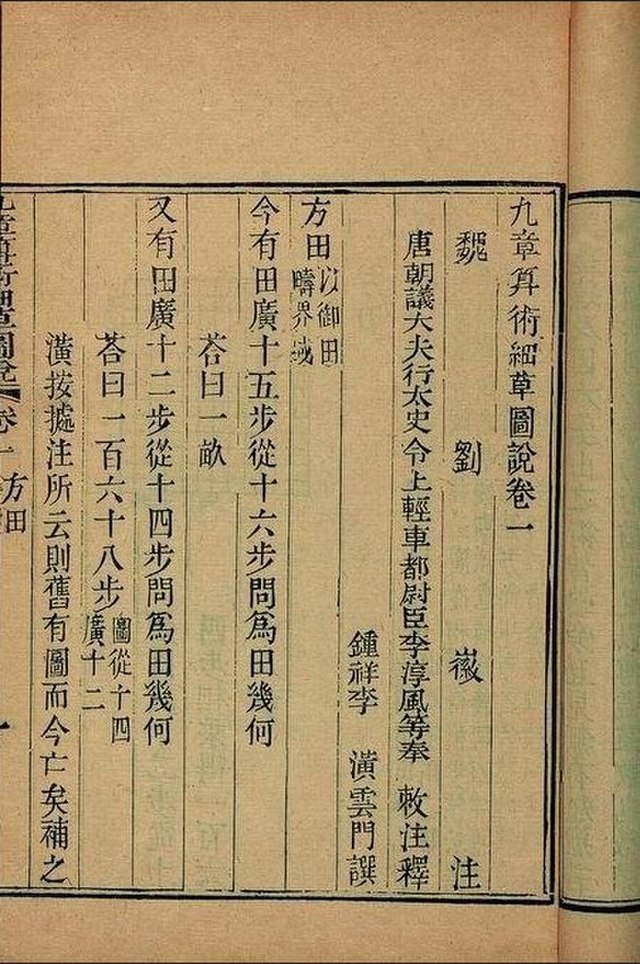 九章算術細草圖說卷一
魏 劉 徽 注
唐朝議大夫行太史令上輕車都尉臣李淳風等奉 敕注釋
鍾祥李 潢雲門譔
方田以御田
疇界域
今有田廣十五步從十六步問爲田幾何
荅曰一畝
又有田廣十二步從十四步問爲田幾何
荅曰一百六十八步圖從十四
廣十二
潢按據注所云則舊有圖而今亡矣補之
九章算術細草圖說 卷一 方田 一